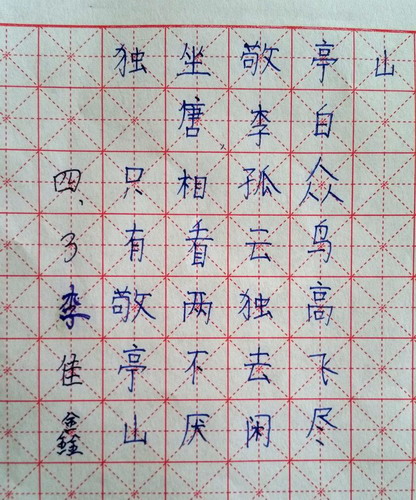 独坐敬亭山
唐李白
众鸟高飞尽
孤云独去闲
相看两不厌
只有敬亭山
四、3李佳鑫